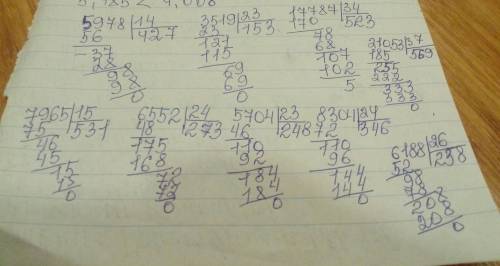 5,185 < 4,008
5978 | 14
56 | 427
37
28
98
98
0
3519 | 23
23 | 153
121
115
69
69
0
17787 | 34
170 | 523
78
68
107
102
5
21053 | 37
185 | 569
255
222
333
333
0
7965 | 15
75 | 531
46
45
15
15
0
6552 | 24
48 | 273
175
168
72
72
0
5704 | 23
46 | 248
110
92
184
184
0
8304 | 24
72 | 346
110
96
144
144
0
6188 | 26
52 | 238
98
78
208
208
0